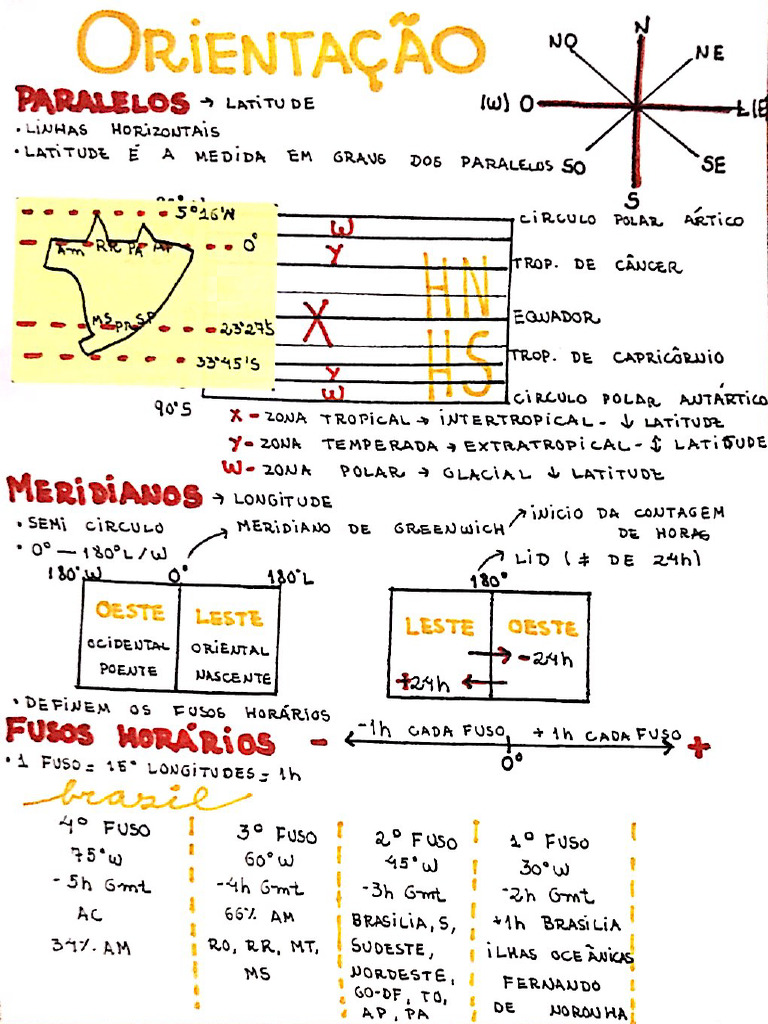 ORIENTAÇÃO
N
NO
NE
(W) O
L(E
SO
SE
S
PARALELOS → LATITUDE
• LINHAS HORIZONTAIS
• LATITUDE É A MEDIDA EM GRAUS DOS PARALELOS
5°16'N
0°
Am RR PA AP
MS PR SP
23°27'S
33°45'S
90°S
W
Y
X
Y
W
HN
HS
CÍRCULO POLAR ÁRTICO
TROP. DE CÂNCER
EQUADOR
TROP. DE CAPRICÓRNIO
CÍRCULO POLAR ANTÁRTICO
X - ZONA TROPICAL → INTERTROPICAL - ↓ LATITUDE
Y - ZONA TEMPERADA → EXTRATROPICAL - ↕ LATITUDE
W - ZONA POLAR → GLACIAL ↓ LATITUDE
MERIDIANOS → LONGITUDE
• SEMI CÍRCULO
MERIDIANO DE GREENWICH
INICIO DA CONTAGEM
DE HORAS
• 0° — 180° L/W
LID (≠ DE 24h)
180°W 0° 180°L
180°
OESTE LESTE
OCIDENTAL ORIENTAL
POENTE NASCENTE
LESTE OESTE
-24h
+24h
• DEFINEM OS FUSOS HORÁRIOS
FUSOS HORÁRIOS
- -1h CADA FUSO + 1h CADA FUSO +
0°
• 1 FUSO = 15° LONGITUDES = 1h
brasil
4º FUSO
75°W
-5h Gmt
AC
34% AM
3º FUSO
60°W
-4h Gmt
66% AM
RO, RR, MT,
MS
2º FUSO
45°W
-3h Gmt
BRASILIA, S,
SUDESTE,
NORDESTE,
GO-DF, TO,
AP, PA
1º FUSO
30°W
-2h Gmt
+1h BRASILIA
ILHAS OCEÂNICAS
FERNANDO
DE NORONHA